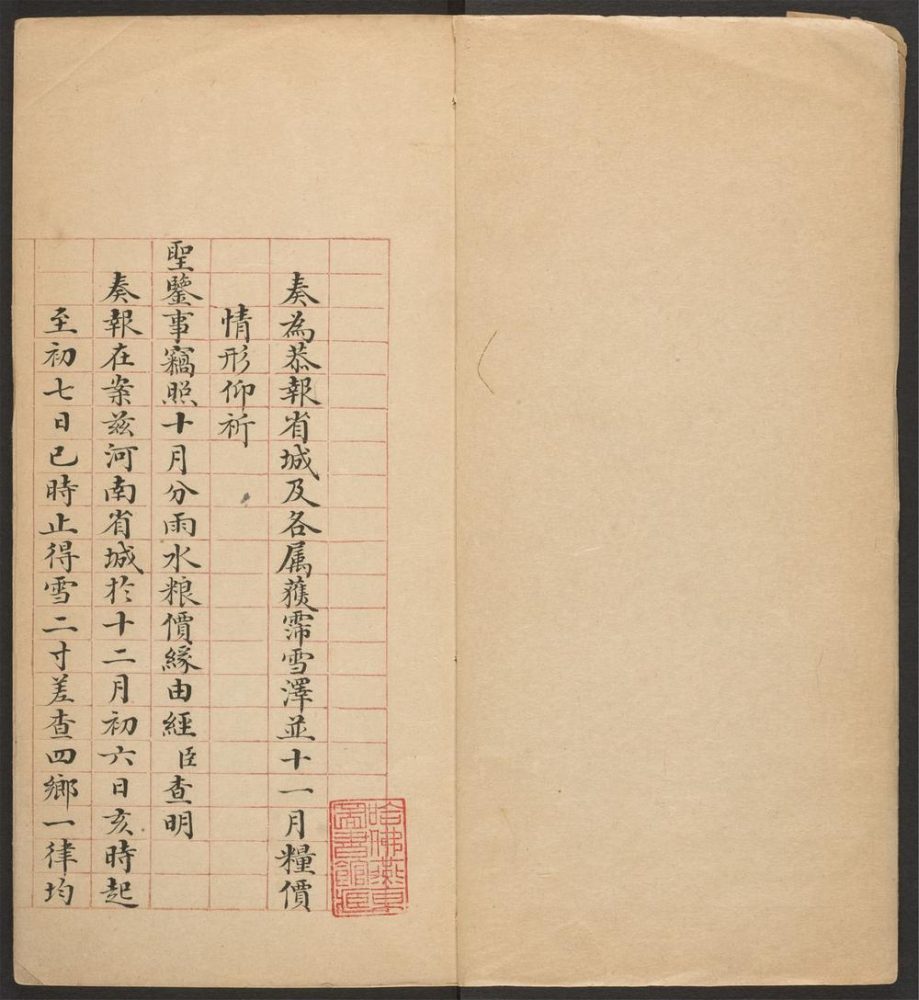 奏為恭報省城及各属獲霈雪澤並十一月糧價
情形仰祈
聖鑒事竊照十月分雨水粮價緣由經臣查明
奏報在案兹河南省城扵十二月初六日亥時起
至初七日巳時止得雪二寸差查四鄉一律均
哈佛燕京
圖書館藏